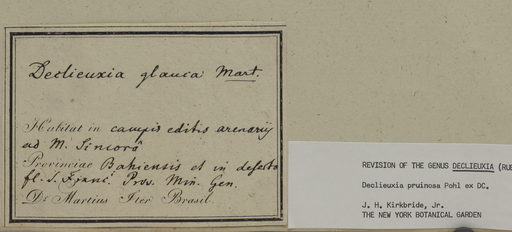 Declieuxia glauca Mart.
Habitat in campis editis arenarij
ad M. Sincorá
Provinciae Bahiensis et in deserto
fl. S. Franc. Prov. Min. Gen.
Dr Martius Iter Brasil.
REVISION OF THE GENUS DECLIEUXIA (RUB
Declieuxia pruinosa Pohl ex DC.
J. H. Kirkbride, Jr.
THE NEW YORK BOTANICAL GARDEN